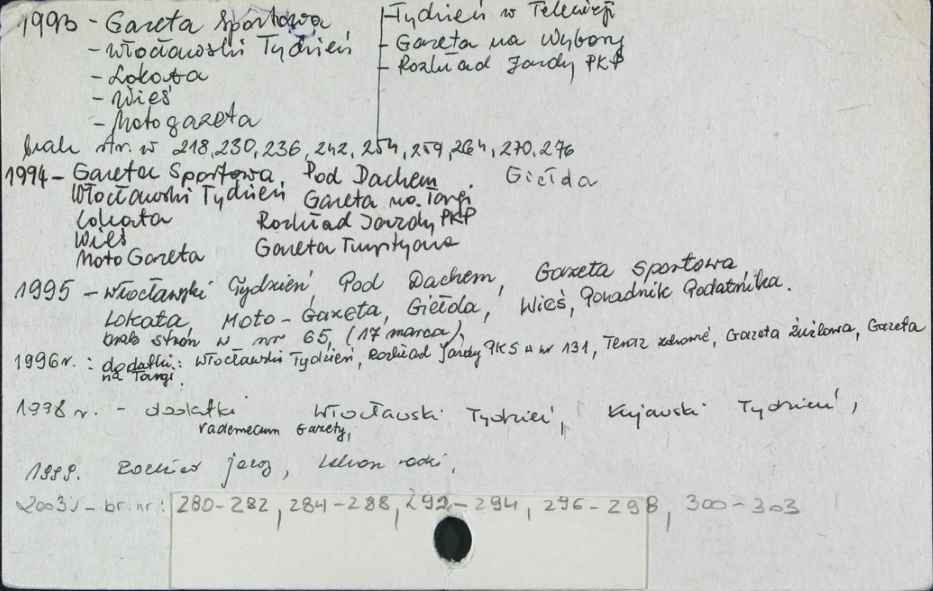 1993 - Gazeta Sportowa
- Włocławski Tydzień
- Lokata
- Wieś
- Motogazeta
- Tydzień w Telewizji
- Gazeta na Wybory
- Rozkład Jazdy PKP
brak str. w 218, 230, 236, 242, 254, 259, 264, 270, 276
1994 - Gazeta Sportowa, Pod Dachem, Giełda
Włocławski Tydzień Gazeta na Targi
Lokata Rozkład Jazdy PKP
Wieś Gazeta Turystyczna
Moto Gazeta
1995 - Włocławski Tydzień Pod Dachem, Gazeta Sportowa,
Lokata, Moto-Gazeta, Giełda, Wieś, Poradnik Podatnika.
brak stron w nr 65, (17 marca),
1996 r. : dodatki: Włocławski Tydzień, Rozkład Jazdy PKS w nr 131, Teraz zdrowie, Gazeta Żużlowa, Gazeta
na Targi.
1998 r. - dodatki Włocławski Tydzień, Kujawski Tydzień,
Vademecum Gazety,
1999.
2003 r - br. nr: 280-282, 284-288, 292-294, 296-298, 300-303